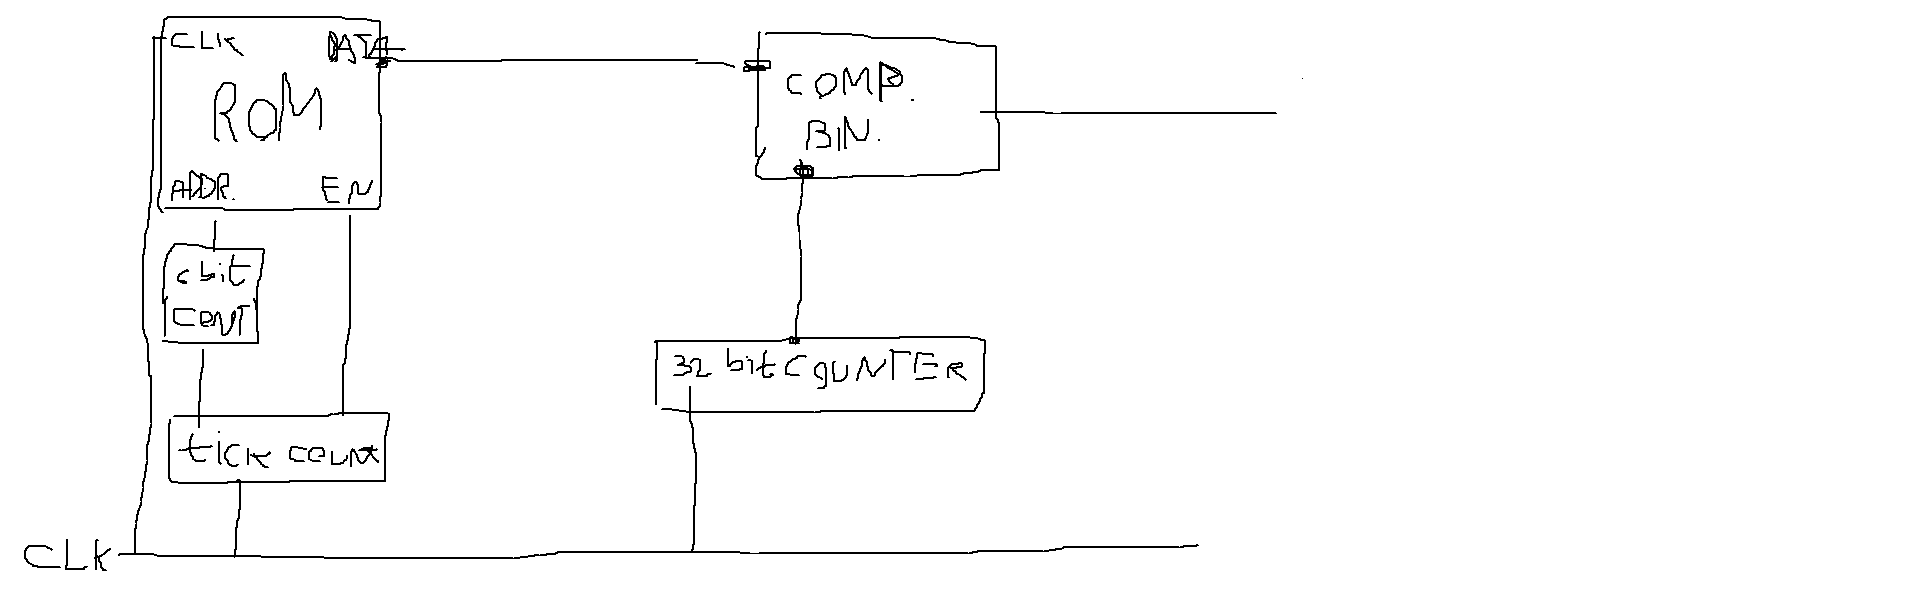 CLK DATA
ROM
ADDR. EN
cbit
CONT
tick count
CLK
COMP.
BIN.
32 bit COUNTER